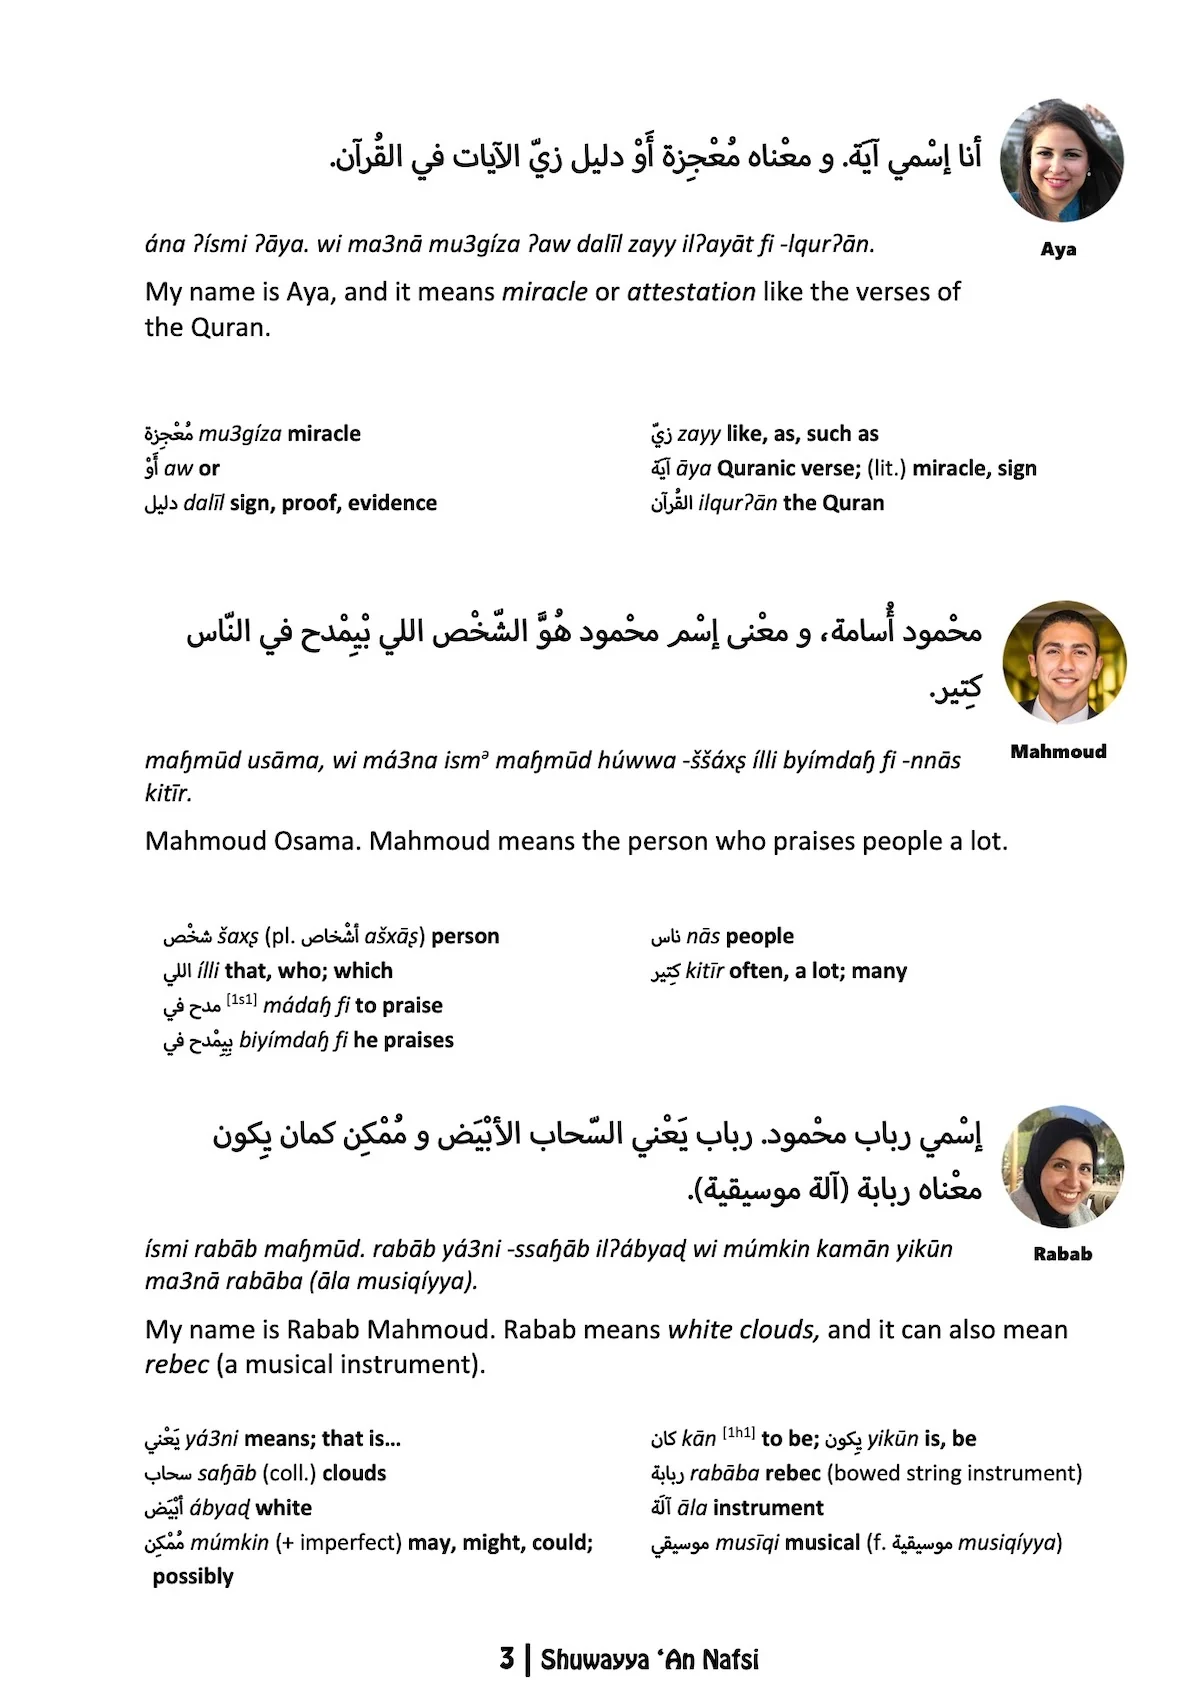 أنا إسْمي آيَة. و معْناه مُعْجِزة أَوْ دليل زيّ الآيات في القُرآن.
Aya
ána ʔísmi ʔāya. wi ma3nā mu3gíza ʔaw dalīl zayy ilʔayāt fi -lqurʔān.
My name is Aya, and it means miracle or attestation like the verses of
the Quran.
مُعْجِزة mu3gíza miracle
أَوْ aw or
دليل dalīl sign, proof, evidence
زيّ zayy like, as, such as
آيَة āya Quranic verse; (lit.) miracle, sign
القُرآن ilqurʔān the Quran
محْمود أُسامة، و معْنى إسْم محْمود هُوَّ الشّخْص اللي بْيِمْدح في النّاس
كتِير.
Mahmoud
maɧmūd usāma, wi má3na ismᵊ maɧmūd húwwa -ššáxʂ ílli byímdaɧ fi -nnās
kitīr.
Mahmoud Osama. Mahmoud means the person who praises people a lot.
شخْص šaxʂ (pl. أشْخاص ašxāʂ) person
اللي ílli that, who; which
مدح في [1s1] mádaɧ fi to praise
بِيِمْدح في biyímdaɧ fi he praises
ناس nās people
كتِير kitīr often, a lot; many
إسْمي رباب محْمود. رباب يَعْني السّحاب الأبْيَض و مُمْكِن كمان يِكون
معْناه ربابة (آلة موسيقية).
Rabab
ísmi rabāb maɧmūd. rabāb yá3ni -ssaɧāb ilʔábyaɖ wi múmkin kamān yikūn
ma3nā rabāba (āla musiqíyya).
My name is Rabab Mahmoud. Rabab means white clouds, and it can also mean
rebec (a musical instrument).
يَعْني yá3ni means; that is...
سحاب saɧāb (coll.) clouds
أبْيَض ábyaɖ white
مُمْكِن múmkin (+ imperfect) may, might, could;
possibly
كان kān [1h1] to be; يِكون yikūn is, be
ربابة rabāba rebec (bowed string instrument)
آلَة āla instrument
موسيقي musīqi musical (f. موسيقية musiqíyya)
3 | Shuwayya ‘An Nafsi